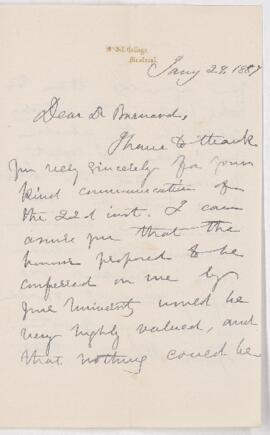 McGill College,
Montreal.
Jany 29, 1887
Dear Dr Barnard,
I have to thank
you very sincerely for your
kind communication of
the 22d inst. I can
assure you that the
honour proposed to be
conferred on me by
your University would be
very highly valued, and
that nothing could be